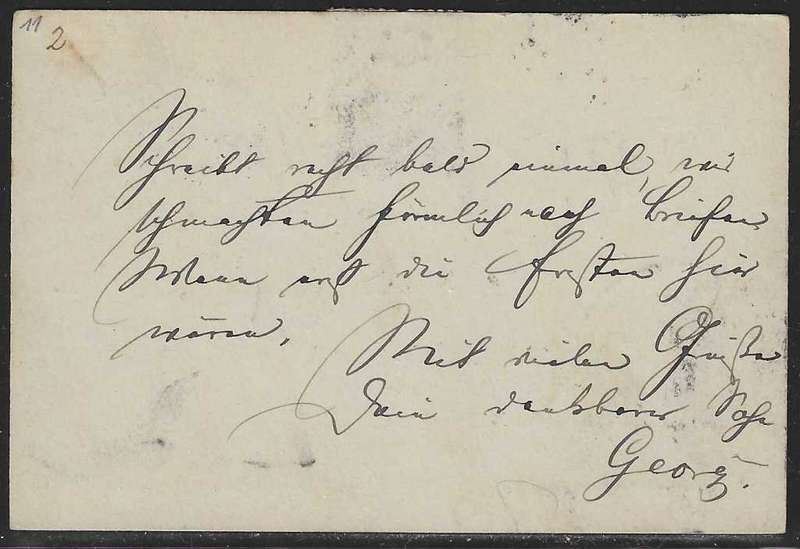 11
2
Schreibt recht bald einmal, wir
schmachten förmlich nach Briefen.
Wenn erst die Ersten hier
wären.
Mit vielen Grüßen
Dein dankbarer Sohn
Georg.